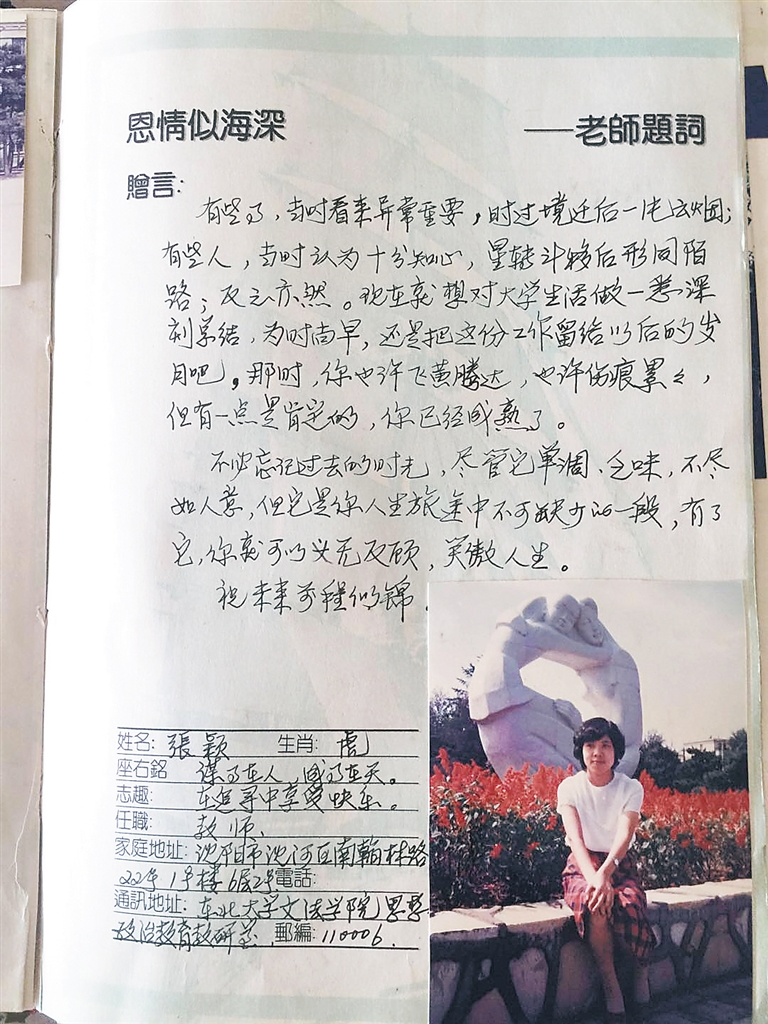 恩情似海深 ——老師題詞
贈言:
有些事,当时看来异常重要,时过境迁后一片云烟;
有些人,当时认为十分知心,星转斗移后形同陌
路;反之亦然。现在就想对大学生活做一番深
刻总结,为时尚早,还是把这份工作留给以后的岁
月吧。那时,你也许飞黄腾达,也许伤痕累々,
但有一点是肯定的,你已经成熟了。
不必忘记过去的时光,尽管它单调、乏味,不尽
如人意,但它是你人生旅途中不可缺少的一段,有了
它,你就可以义无反顾,笑傲人生。
祝未来前程似锦。
姓名: 張颖 生肖: 虎
座右銘 谋事在人,成事在天。
志趣: 在追寻中享受快乐。
任職: 教师、
家庭地址: 沈阳市沈河区南翰林路
22号1号楼6层2号 電話:
通訊地址: 东北大学文法学院思想
政治教育教研室. 郵編: 110006.